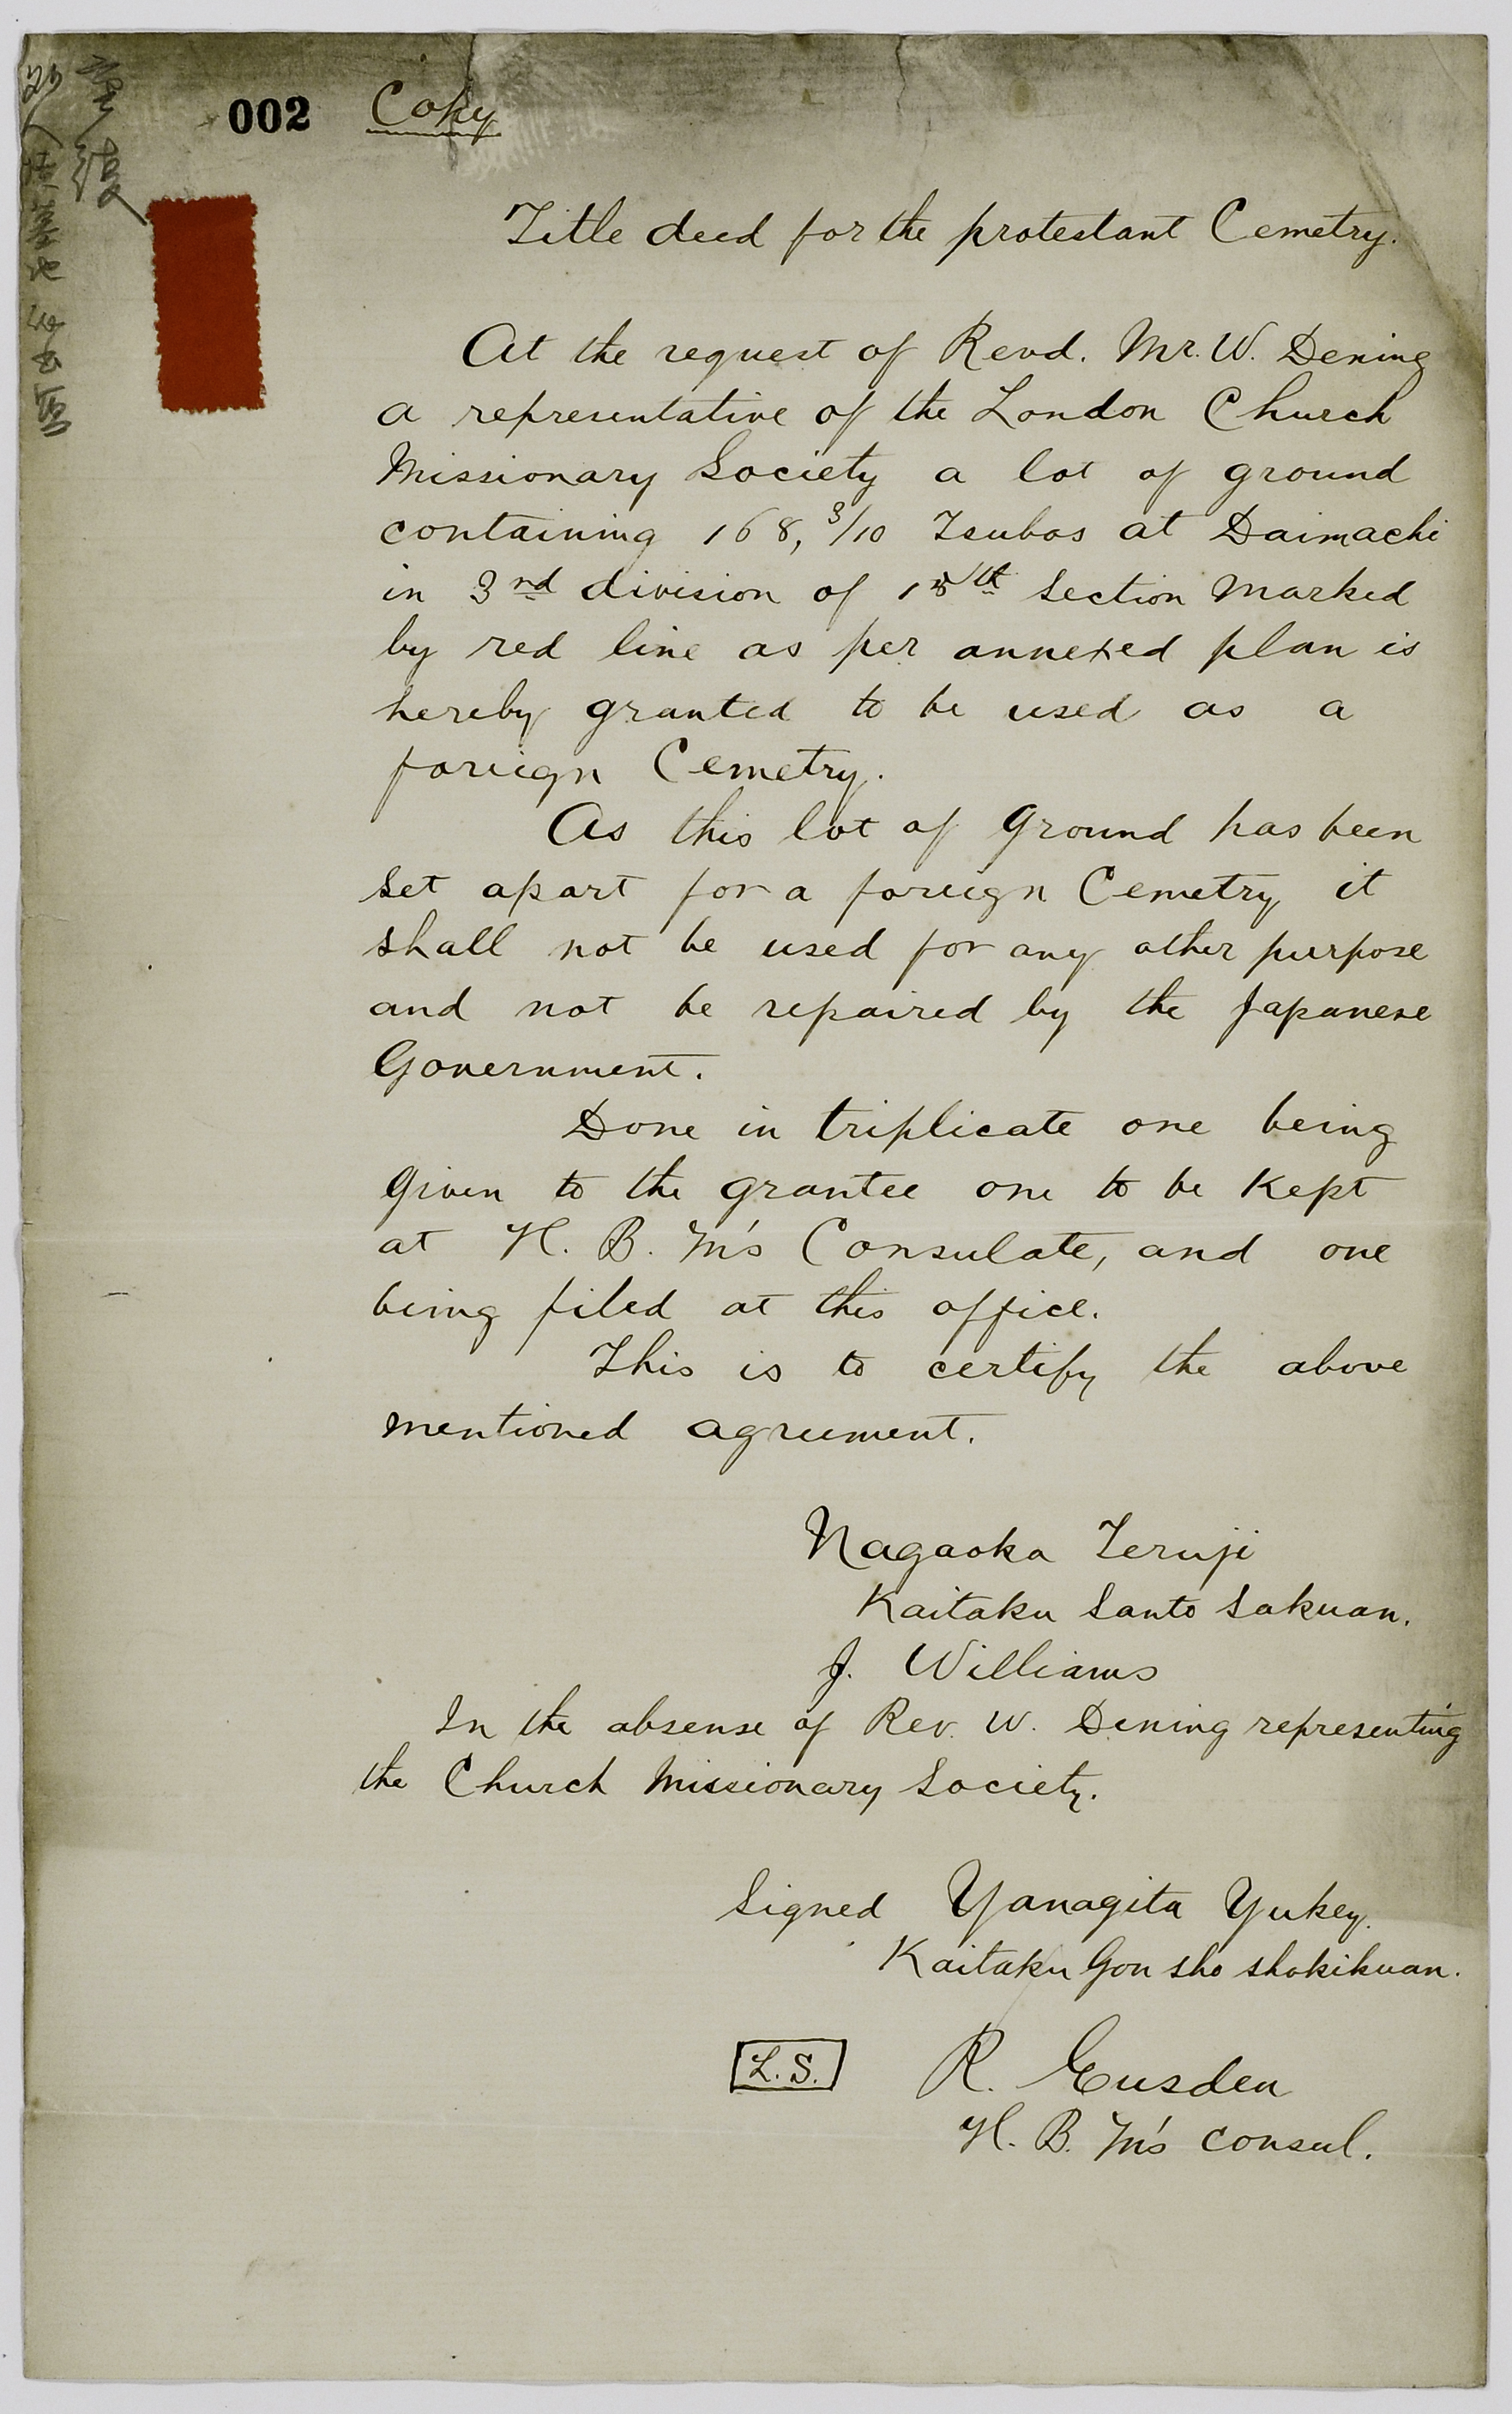 002 Copy
Title deed for the protestant Cemetry.
At the request of Revd. Mr. W. Dening
a representative of the London Church
Missionary Society a lot of ground
containing 168, 3/10 Tsubos at Daimachi
in 3rd division of 15th Section marked
by red line as per annexed plan is
hereby granted to be used as a
foreign Cemetry.
As this lot of ground has been
set apart for a foreign Cemetry it
shall not be used for any other purpose
and not be repaired by the Japanese
Government.
Done in triplicate one being
given to the grantee one to be kept
at H. B. M's Consulate, and one
being filed at this office.
This is to certify the above
mentioned agreement.
Nagaoka Teruji
Kaitaku Santo Sakuan.
J. Williams
In the absense of Rev. W. Dening representing
the Church Missionary Society.
Signed Yanagita Yukey.
Kaitaku Gon sho shokikuan.
L.S. R. Eusden
H. B. M's Consul.